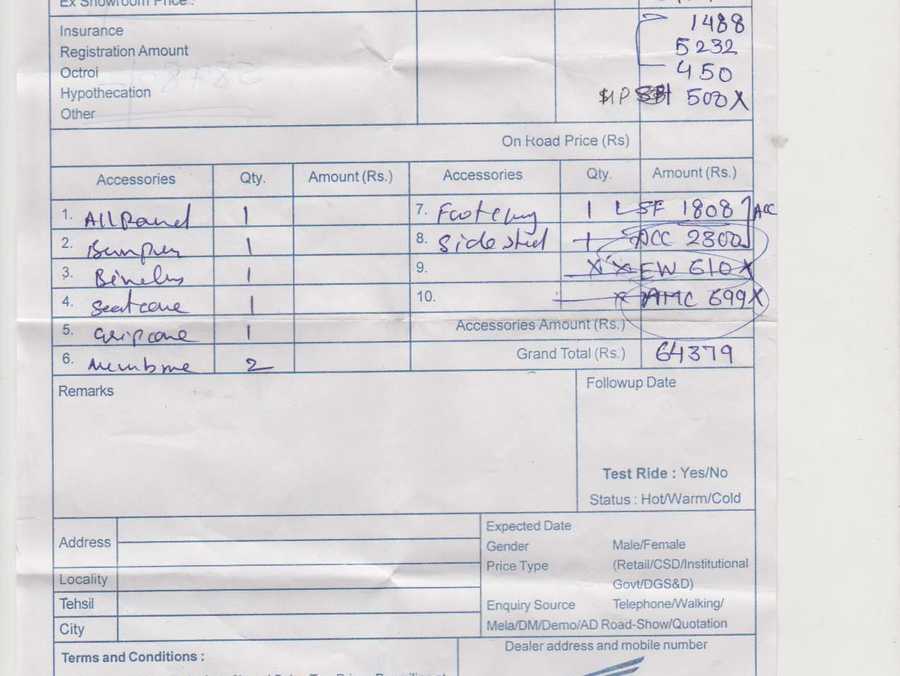 Ex Showroom Price :
Insurance 1488
Registration Amount 5232
Octroi 450
Hypothecation 500 X
Other
On Road Price (Rs)
Accessories Qty. Amount (Rs.) Accessories Qty. Amount (Rs.)
1. 1 7. 1 1808 ACC
2. Bumper 1 8. ACC 2300
3. 1 9. X X EW 610 X
4. Seat 1 10. X AMC 699 X
5. 1 Accessories Amount (Rs.)
6. 2 Grand Total (Rs.) 64379
Remarks Followup Date
Test Ride : Yes/No
Status : Hot/Warm/Cold
Address
Locality
Tehsil
City
Expected Date
Gender Male/Female
Price Type (Retail/CSD/Institutional
Govt/DGS&D)
Enquiry Source Telephone/Walking/
Mela/DM/Demo/AD Road-Show/Quotation
Dealer address and mobile number
Terms and Conditions :